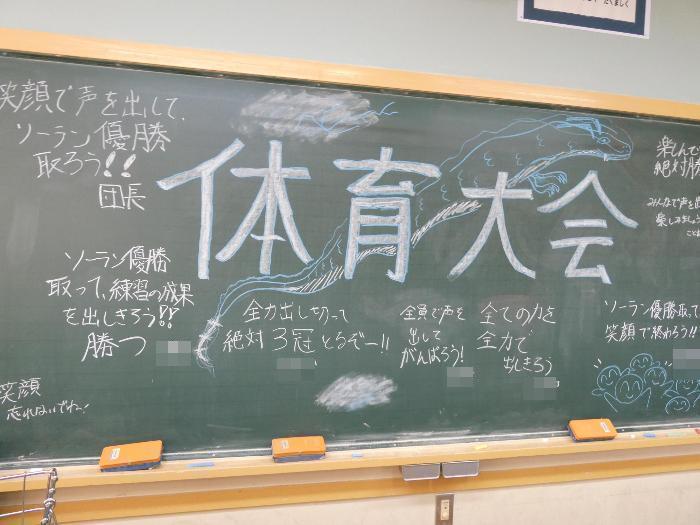 たくましく
笑顔で声を出して、
ソーラン優勝
取ろう!!
団長
体育大会
楽しんで
絶対勝
みんなで声を出
楽しみましょう
ソーラン優勝
取って、練習の成果
を出しきろう!!
勝つ
全力出し切って
絶対3冠とるぞー!!
全員で声を
出して
がんばろう!
全ての力を
全力で
出しきろう
ソーラン優勝取って
笑顔で終わろう!!
笑顔
忘れないでねー!